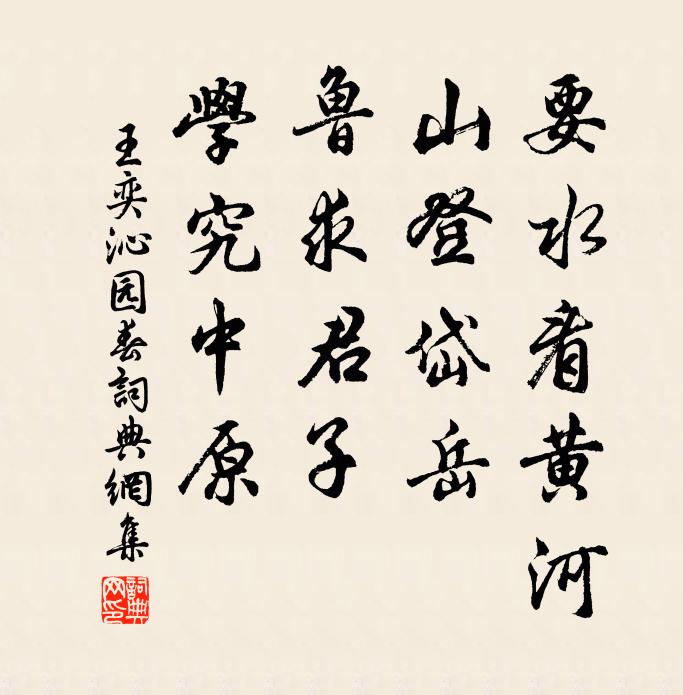 要水看黄河
山登岱岳
魯求君子
學究中原
王奕沁园春詞典網集
詞典网印